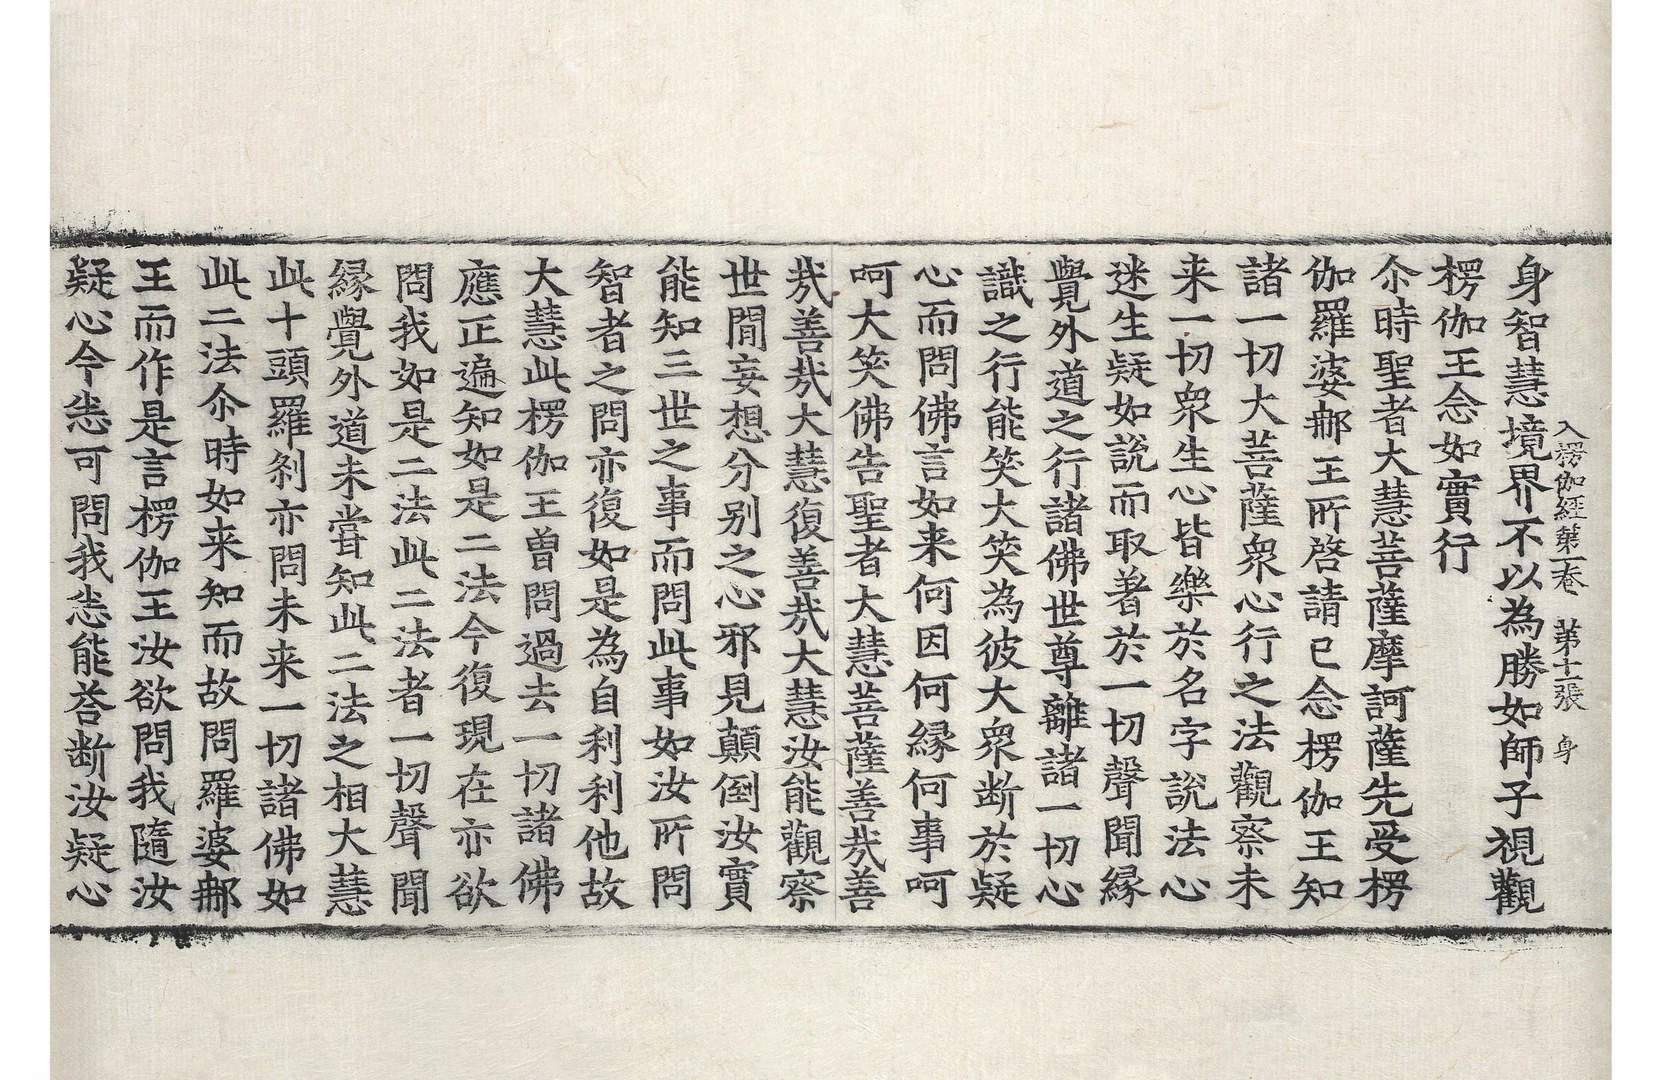 入楞伽經第一卷 第十二張 身
身智慧境界不以為勝如師子視觀
楞伽王念如實行
尒時聖者大慧菩薩摩訶薩先受楞
伽羅婆那王所啓請已念楞伽王知
諸一切大菩薩衆心行之法觀察未
来一切衆生心皆樂於名字說法心
迷生疑如說而取著於一切聲聞縁
覺外道之行諸佛世尊離諸一切心
識之行能笑大笑為彼大衆断於疑
心而問佛言如来何因何縁何事呵
呵大笑佛告聖者大慧菩薩善㢤善
㢤善㢤大慧復善㢤大慧汝能觀察
世閒妄想分别之心邪見顛倒汝實
能知三世之事而問此事如汝所問
智者之問亦復如是為自利利他故
大慧此楞伽王曽問過去一切諸佛
應正遍知如是二法今復現在亦欲
問我如是二法此二法者一切聲聞
縁覺外道未甞知此二法之相大慧
此十頭羅刹亦問未来一切諸佛如
此二法尒時如来知而故問羅婆那
王而作是言楞伽王汝欲問我隨汝
疑心今悉可問我悉能荅断汝疑心